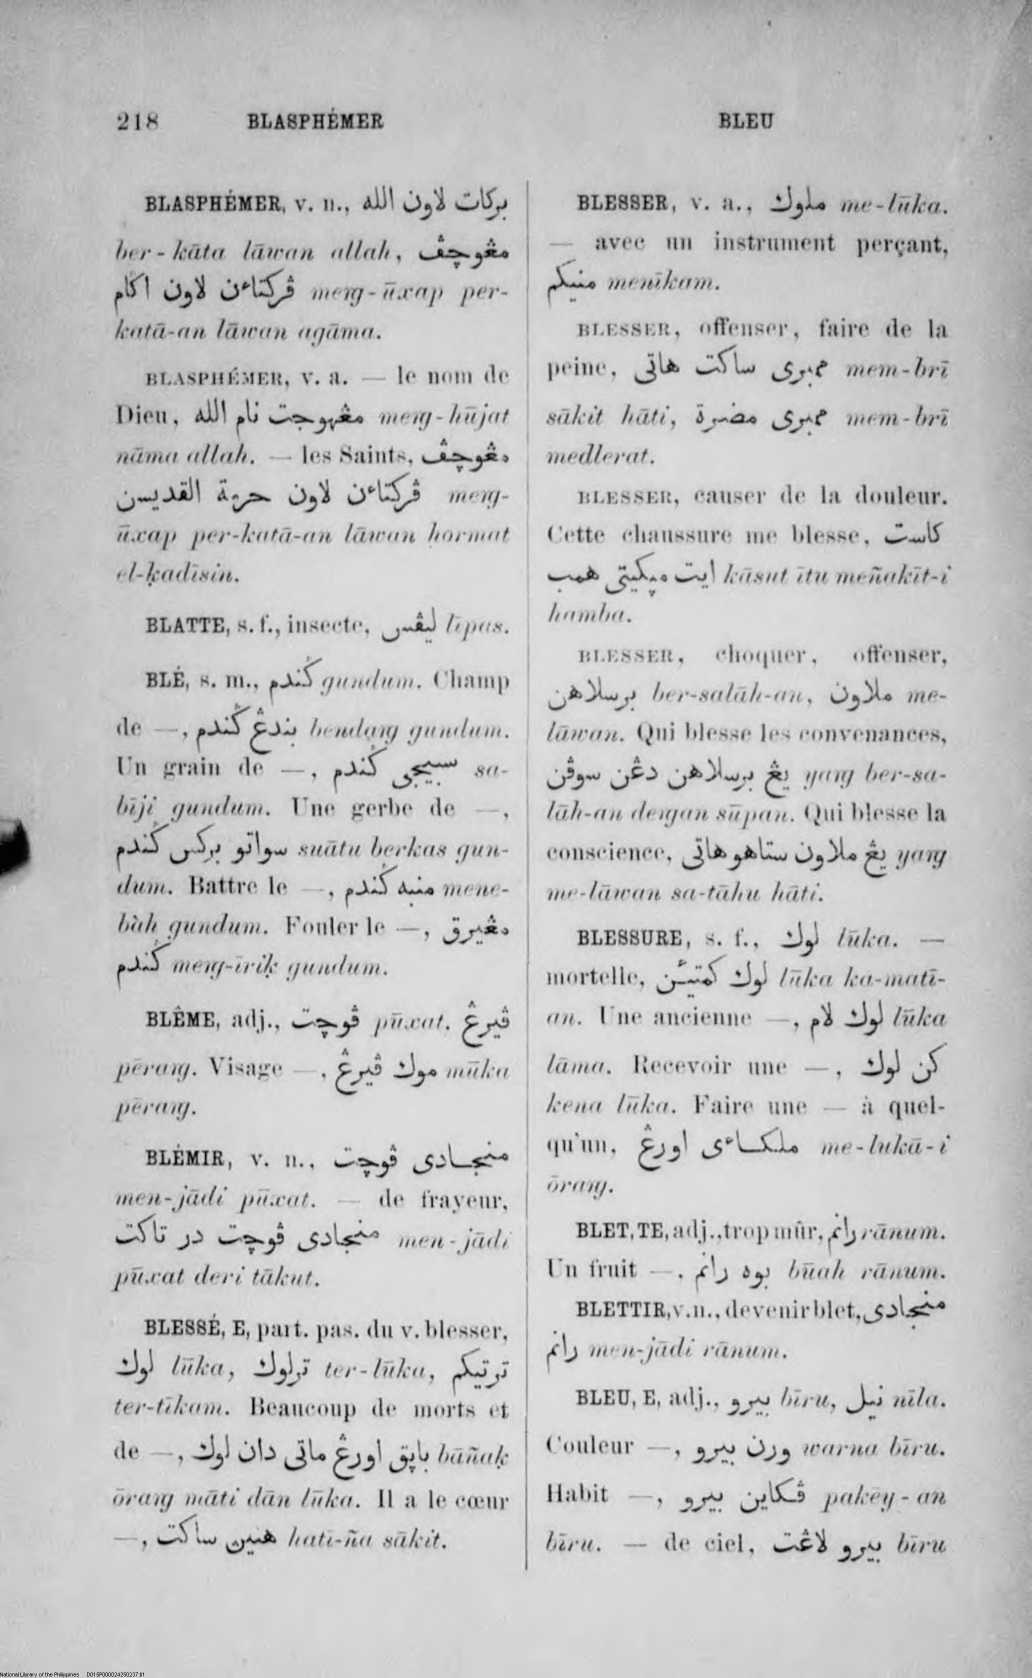 218 BLASPHÉMER BLEU
BLASPHÉMER, v. n., بركات لاون الله
ber-kāta lāwan allah, مڠوچڤ
ڤركتاءن لاون اݢام meng-ūxap per-
katā-an lāwan agāma.
BLASPHÉMER, v. a. — le nom de
Dieu, مڠهوجت نام الله meng-hūjat
nāma allah. — les Saints, مڠوچڤ
ڤركتاءن لاون حرمة القديسن meng-
ūxap per-katā-an lāwan hormat
el-ḳadīsin.
BLATTE, s. f., insecte, ليڤس līpas.
BLÉ, s. m., ݢندم gundum. Champ
de —, بندڠ ݢندم bendang gundum.
Un grain de —, سبيجي ݢندم sa-
bīji gundum. Une gerbe de —,
سواتو بركس ݢندم suātu berkas gun-
dum. Battre le —, منبه ݢندم mene-
bàh gundum. Fouler le —, مڠيرق
ݢندم meng-īriḳ gundum.
BLÊME, adj., ڤوچت pūxat. ڤيرڠ
pērang. Visage —, موك ڤيرڠ mūka
pērang.
BLÉMIR, v. n., منجادي ڤوچت
men-jādi pūxat. — de frayeur,
منجادي ڤوچت در تاكت men-jādi
pūxat deri tākut.
BLESSÉ, E, part. pas. du v. blesser,
لوك lūka, ترلوك ter-lūka, ترتيكم
ter-tīkam. Beaucoup de morts et
de —, باڽق اورڠ ماتي دان لوك bāñaḳ
ōrang māti dān lūka. Il a le cœur
—, هتيڽ ساكت hatī-ña sākit.
BLESSER, v. a., ملوك me-lūka.
— avec un instrument perçant,
منيكم menīkam.
BLESSER, offenser, faire de la
peine, ممبري ساكت هاتي mem-brī
sākit hāti, ممبري مضرة mem-brī
medlerat.
BLESSER, causer de la douleur.
Cette chaussure me blesse, كاست
ايت مڽكيتي همب kāsut ītu meñakīt-i
hamba.
BLESSER, choquer, offenser,
برسلاهن ber-salāh-an, ملاون me-
lāwan. Qui blesse les convenances,
يڠ برسلاهن دڠن سوڤن yang ber-sa-
lāh-an dengan sūpan. Qui blesse la
conscience, يڠ ملاون ستاهو هاتي yang
me-lāwan sa-tāhu hāti.
BLESSURE, s. f., لوك lūka. —
mortelle, لوك كمتيئن lūka ka-matī-
an. Une ancienne —, لوك لام lūka
lāma. Recevoir une —, كن لوك
kena lūka. Faire une — à quel-
qu'un, ملكاءي اورڠ me-lukā-i
ōrang.
BLET, TE, adj., trop mûr, رانم rānum.
Un fruit —, بوه رانم būah rānum.
BLETTIR, v. n., devenir blet, منجادي
رانم men-jādi rānum.
BLEU, E, adj., بيرو bīru, نيل nīla.
Couleur —, ورن بيرو warna bīru.
Habit —, ڤكاين بيرو pakēy-an
bīru. — de ciel, بيرو لاڠت bīru
National Library of the Philippines